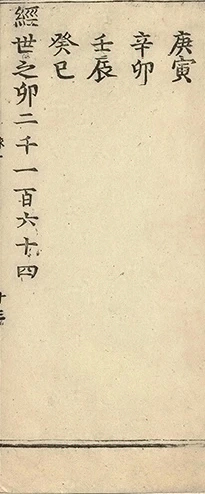 庚寅
辛卯
壬辰
癸巳
經世之卯二千一百六十四